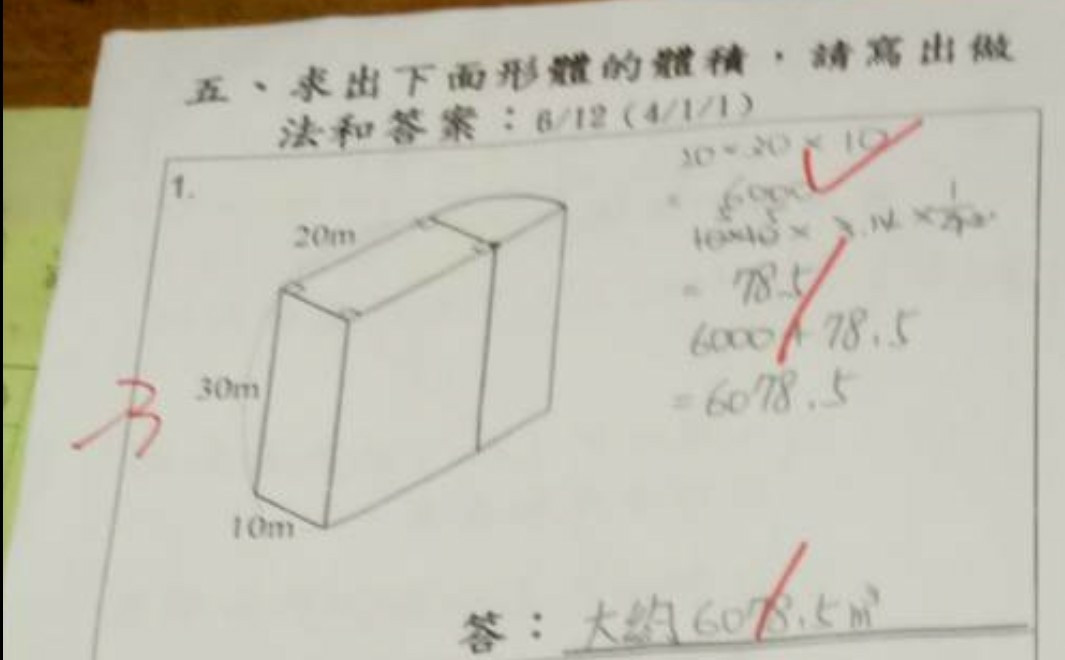 五、求出下面形體的體積，請寫出做
法和答案：6/12（4/1/1）
1.
20m
30m
10m
× 10
= 6000
× 3.14 ×
= 78.5
6000 + 78.5
= 6078.5
答：大約 6078.5 m³